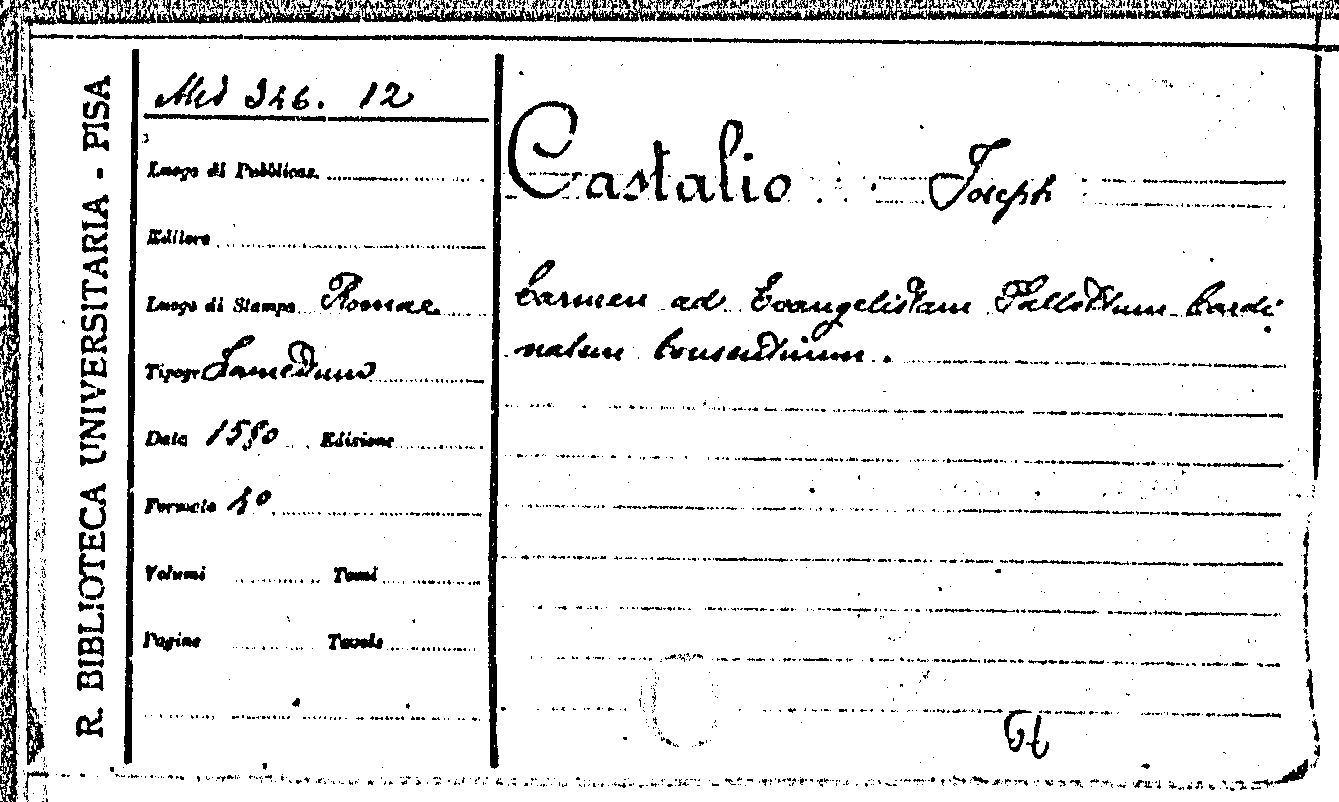 R. BIBLIOTECA UNIVERSITARIA - PISA
Misc 346. 12
Luogo di Pubblicaz.
Editore
Luogo di Stampa Romae
Tipogr
Data 1590 Edizione
Formato 4°
Volumi Tomi
Pagine Tavole
Castalio Joseph
Carmen ad Evangelistam Pallottum Cardi
nalem Cousentinum.